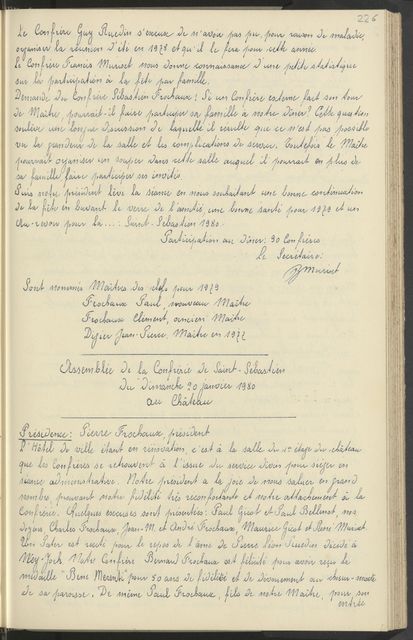 226
Le Confrère Guy Ruedin s'excuse de n'avoir pas pu, pour raison de maladie,
organiser la réunion d'été en 1978 et qu'il le fera pour cette année.
Le Confrère Francis Murset nous donne connaissance d'une petite statistique
sur la participation à la fête par famille.
Demande du Confrère Sébastien Frochaux: Si un Confrère externe fait son tour
de Maître, pourrait-il faire participer sa famille à notre dîner? Cette question
soulève une longue discussion de laquelle il résulte que ce n'est pas possible
vu la grandeur de la salle et les complications de service. Toutefois le Maître
pourrait organiser un souper dans cette salle auquel il pourrait en plus de
sa famille faire participer ses invités.
Puis notre président lève la séance en nous souhaitant une bonne continuation
de la fête en buvant le verre de l'amitié, une bonne santé pour 1979 et un
Au-revoir pour la ...: Saint-Sébastien 1980.
Participation au dîner: 90 Confrères
Le Secrétaire:
Sont nommés Maîtres des clefs pour 1979
Frochaux Paul, nouveau Maître
Frochaux Clément, ancien Maître
Digier Jean-Pierre, Maître en 1977
Assemblée de la Confrérie de Saint-Sébastien
du Dimanche 20 janvier 1980
au Château
Présidence: Pierre Frochaux, président
L'Hôtel de ville étant en rénovation, c'est à la salle du 1er étage du château
que les Confrères se retrouvent à l'issue du service divin pour siéger en
séance administrative. Notre président a la joie de nous saluer en grand
nombre, prouvant notre fidélité très réconfortante et notre attachement à la
Confrérie. Quelques excuses sont présentées: Paul Gicot et Paul Bellenot, nos
doyens Charles Frochaux, Jean-M. et André Frochaux, Maurice Gicot et René Murset.
Un Pater est récité pour le repos de l'âme de Pierre Léon Ruedin décédé à
New-York. Notre Confrère Bernard Frochaux est félicité pour avoir reçu la
médaille "Bene Merenti" pour 50 ans de fidélité et de dévouement au chœur-mixte
de sa paroisse. De même Paul Frochaux, fils de notre Maître, pour son
entrée